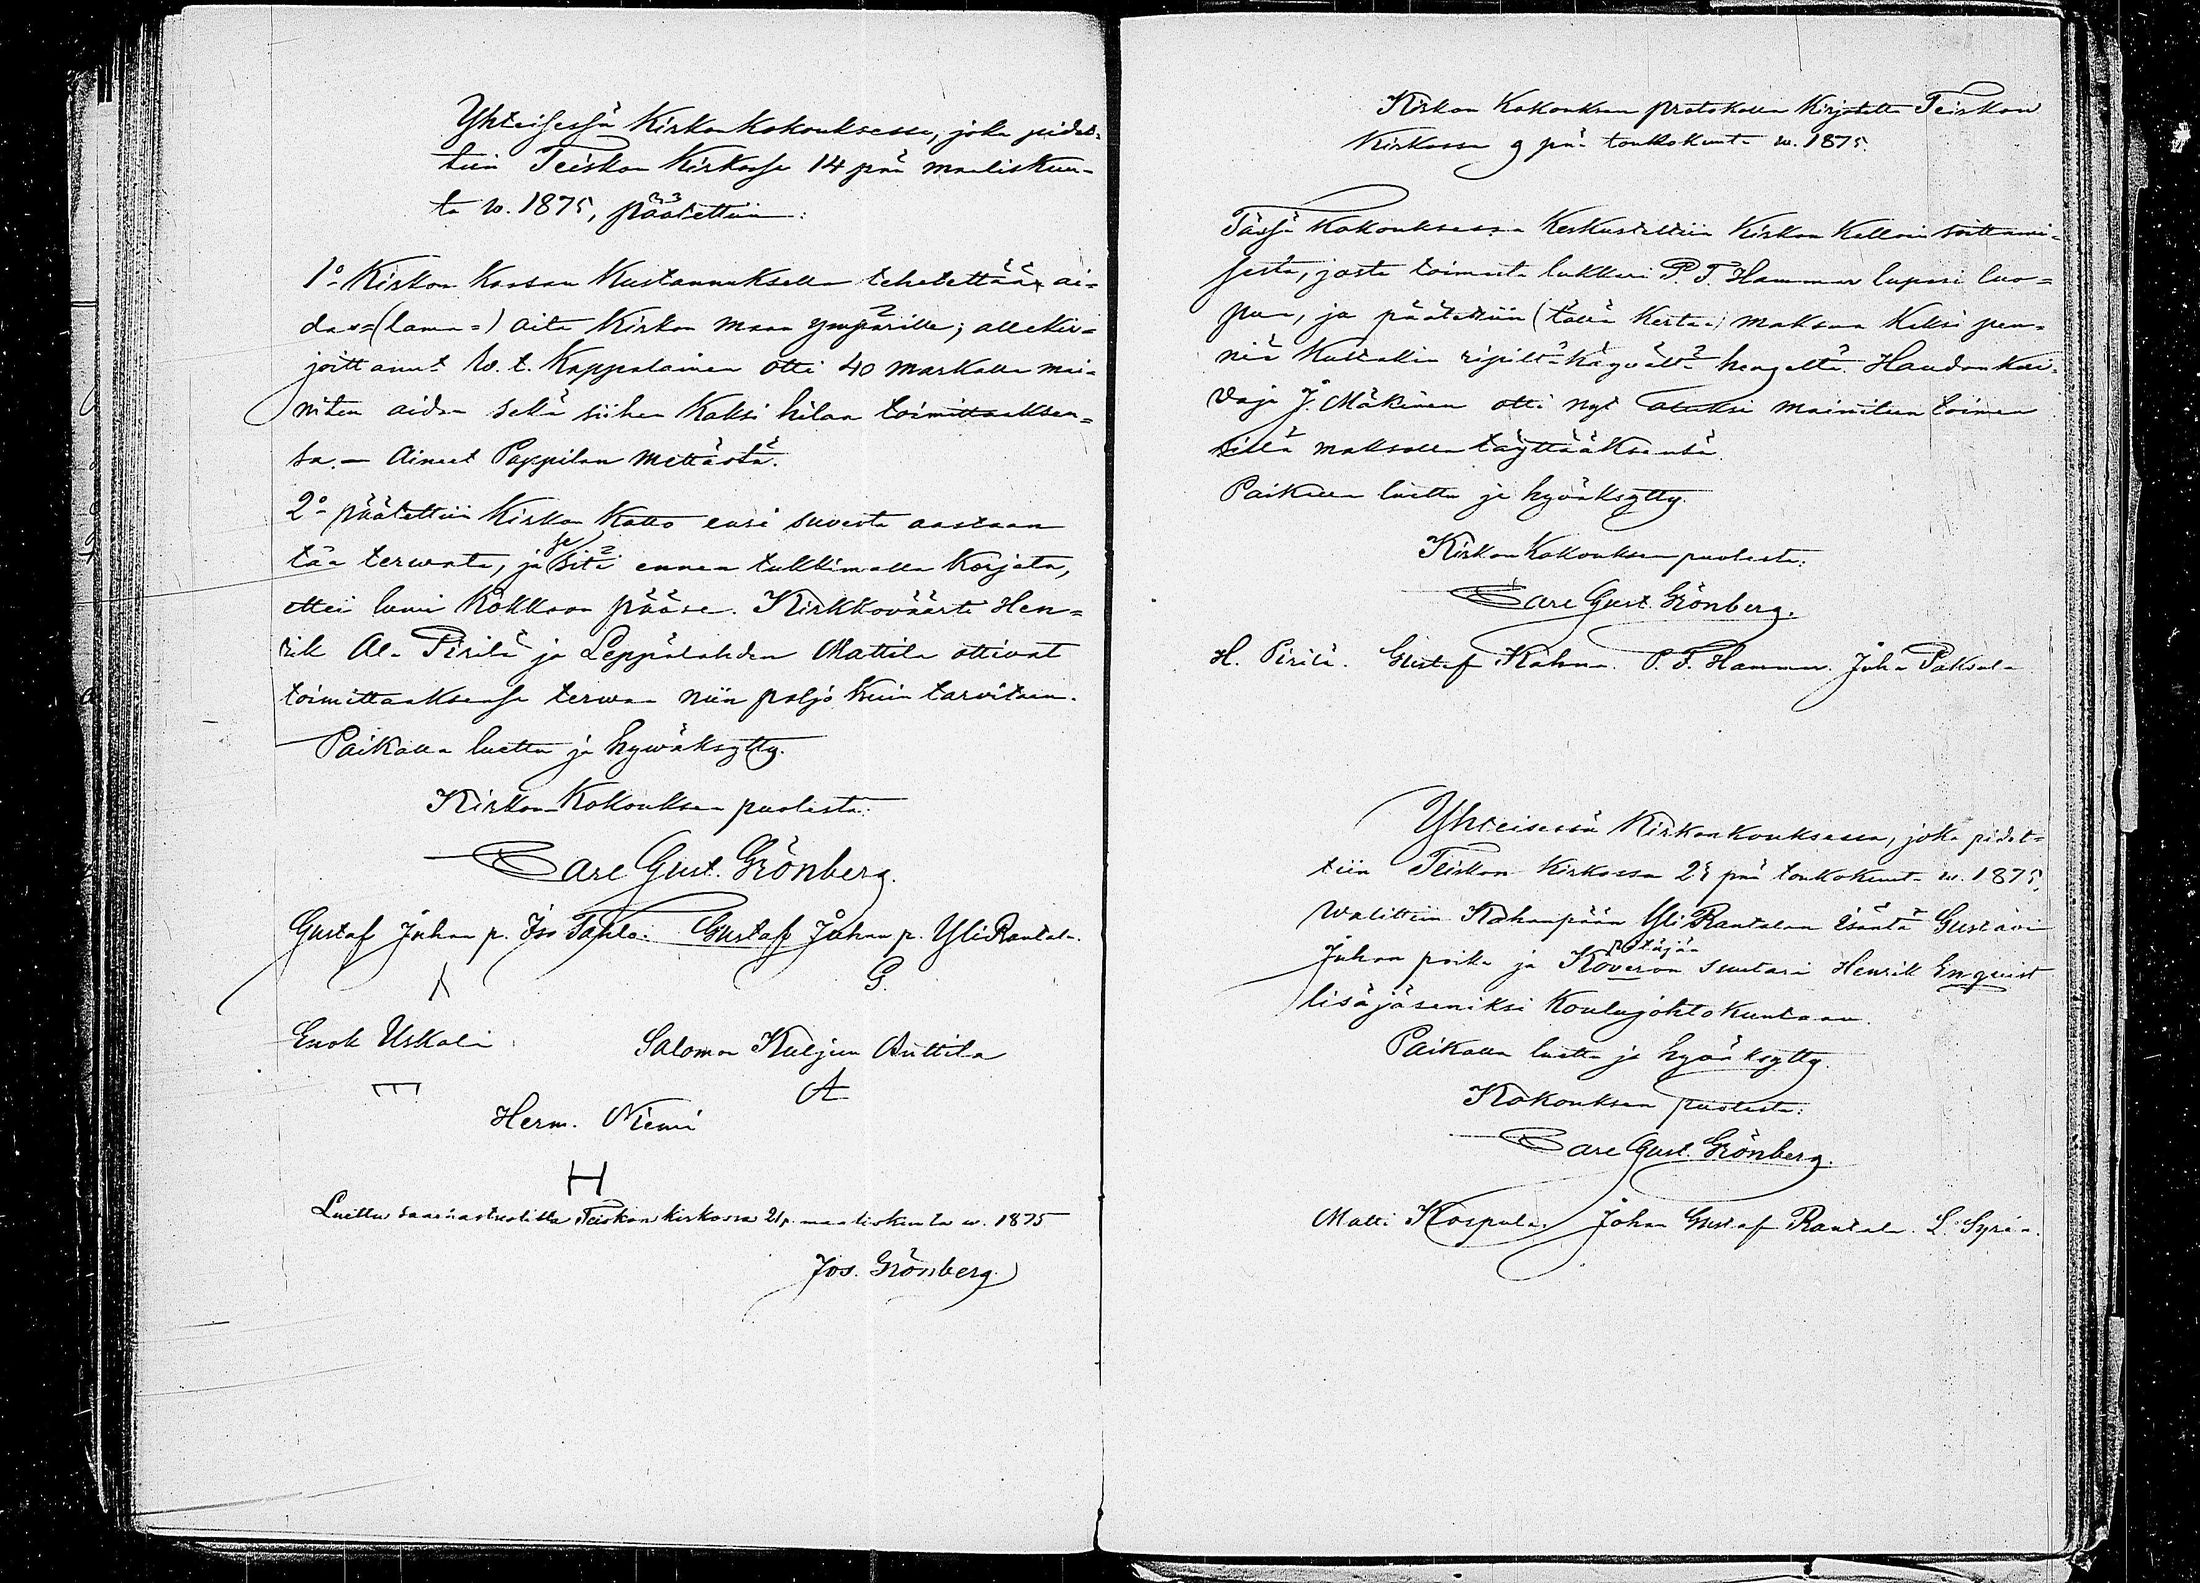 Yhteisessä Kirkon Kokouksessa, joka pidet-
tiin Teiskon Kirkossa 14 pnä maaliskuu-
ta w. 1875, päätettiin:
1:o Kirkon Kassan Kustannuksella tehetettää ai-
das=(lama=) aita Kirkon maan ympärille; allekir-
joittanut W. t. Kappalainen otti 40 markalla mai-
nitun aidan sekä siihen Kaksi hilaa toimittaaksen-
sa. — Aineet Pappilan mettästä.
2:o päätettiin Kirkon Katto ensi suvesta aastaan
tää terwata, ja se sitä ennen tukkimalla Korjata,
ettei lumi Kokkoon pääse. Kirkkoväärti Hen-
rik Al. Pirilä ja Leppälahden Mattila ottivat
toimittaaksensa terwaa niin paljo Kuin tarvitaan.
Paikalla luettu ja hywäksytty.
Kirkon Kokouksen puolesta:
Carl Gust. Grönberg.
Gustaf Juhan p. Iso Tapla. Gustaf Juhan p. YliRantala.
G.
Enok Uskali
Salomon Kuljun Anttila
E
A
Herm. Niemi
H
Luettu saarnastuolilta Teiskon kirkossa 21 p. maaliskuuta w. 1875
Jos. Grönberg
Kirkon Kokouksen protokolla Kirjotettu Teiskon
Kirkossa 9 pnä toukokuuta w. 1875.
Tässä Kokouksessa Keskusteltiin Kirkon Kelloin soittami-
sesta, josta toimesta lukkari P. F. Hammar lupasi luo-
pua, ja päätettiin (tällä Kertaa) maksaa Kaksi pen-
niä Kultakin ripillä Käyvältä hengeltä. Haudan Kai-
vaja J. Mäkinen otti nyt aluksi mainitun toimen
sillä maksolla täyttääksensä.
Paikalla luettu ja hyväksytty.
Kirkon Kokouksen puolesta:
Carl Gust. Grönberg.
H. Pirilä. Gustaf Kahna. P. F. Hammar. Juha Paksula
Yhteisessä Kirkonkouksessa, joka pidet-
tiin Teiskon Kirkossa 23 pnä toukokuuta w. 1875,
Walittiin Kahanpään YliRantalan isäntä Gustavi
Juhan poika ja Koveron pitäjän suutari Henrik Enqvist
lisäjäseniksi Koulujohtokuntaan.
Paikalla luettu ja hyväksytty.
Kokouksen puolesta:
Carl Gust. Grönberg.
Matti Kospula. Johan Gustaf Rantala. L. Syriä.